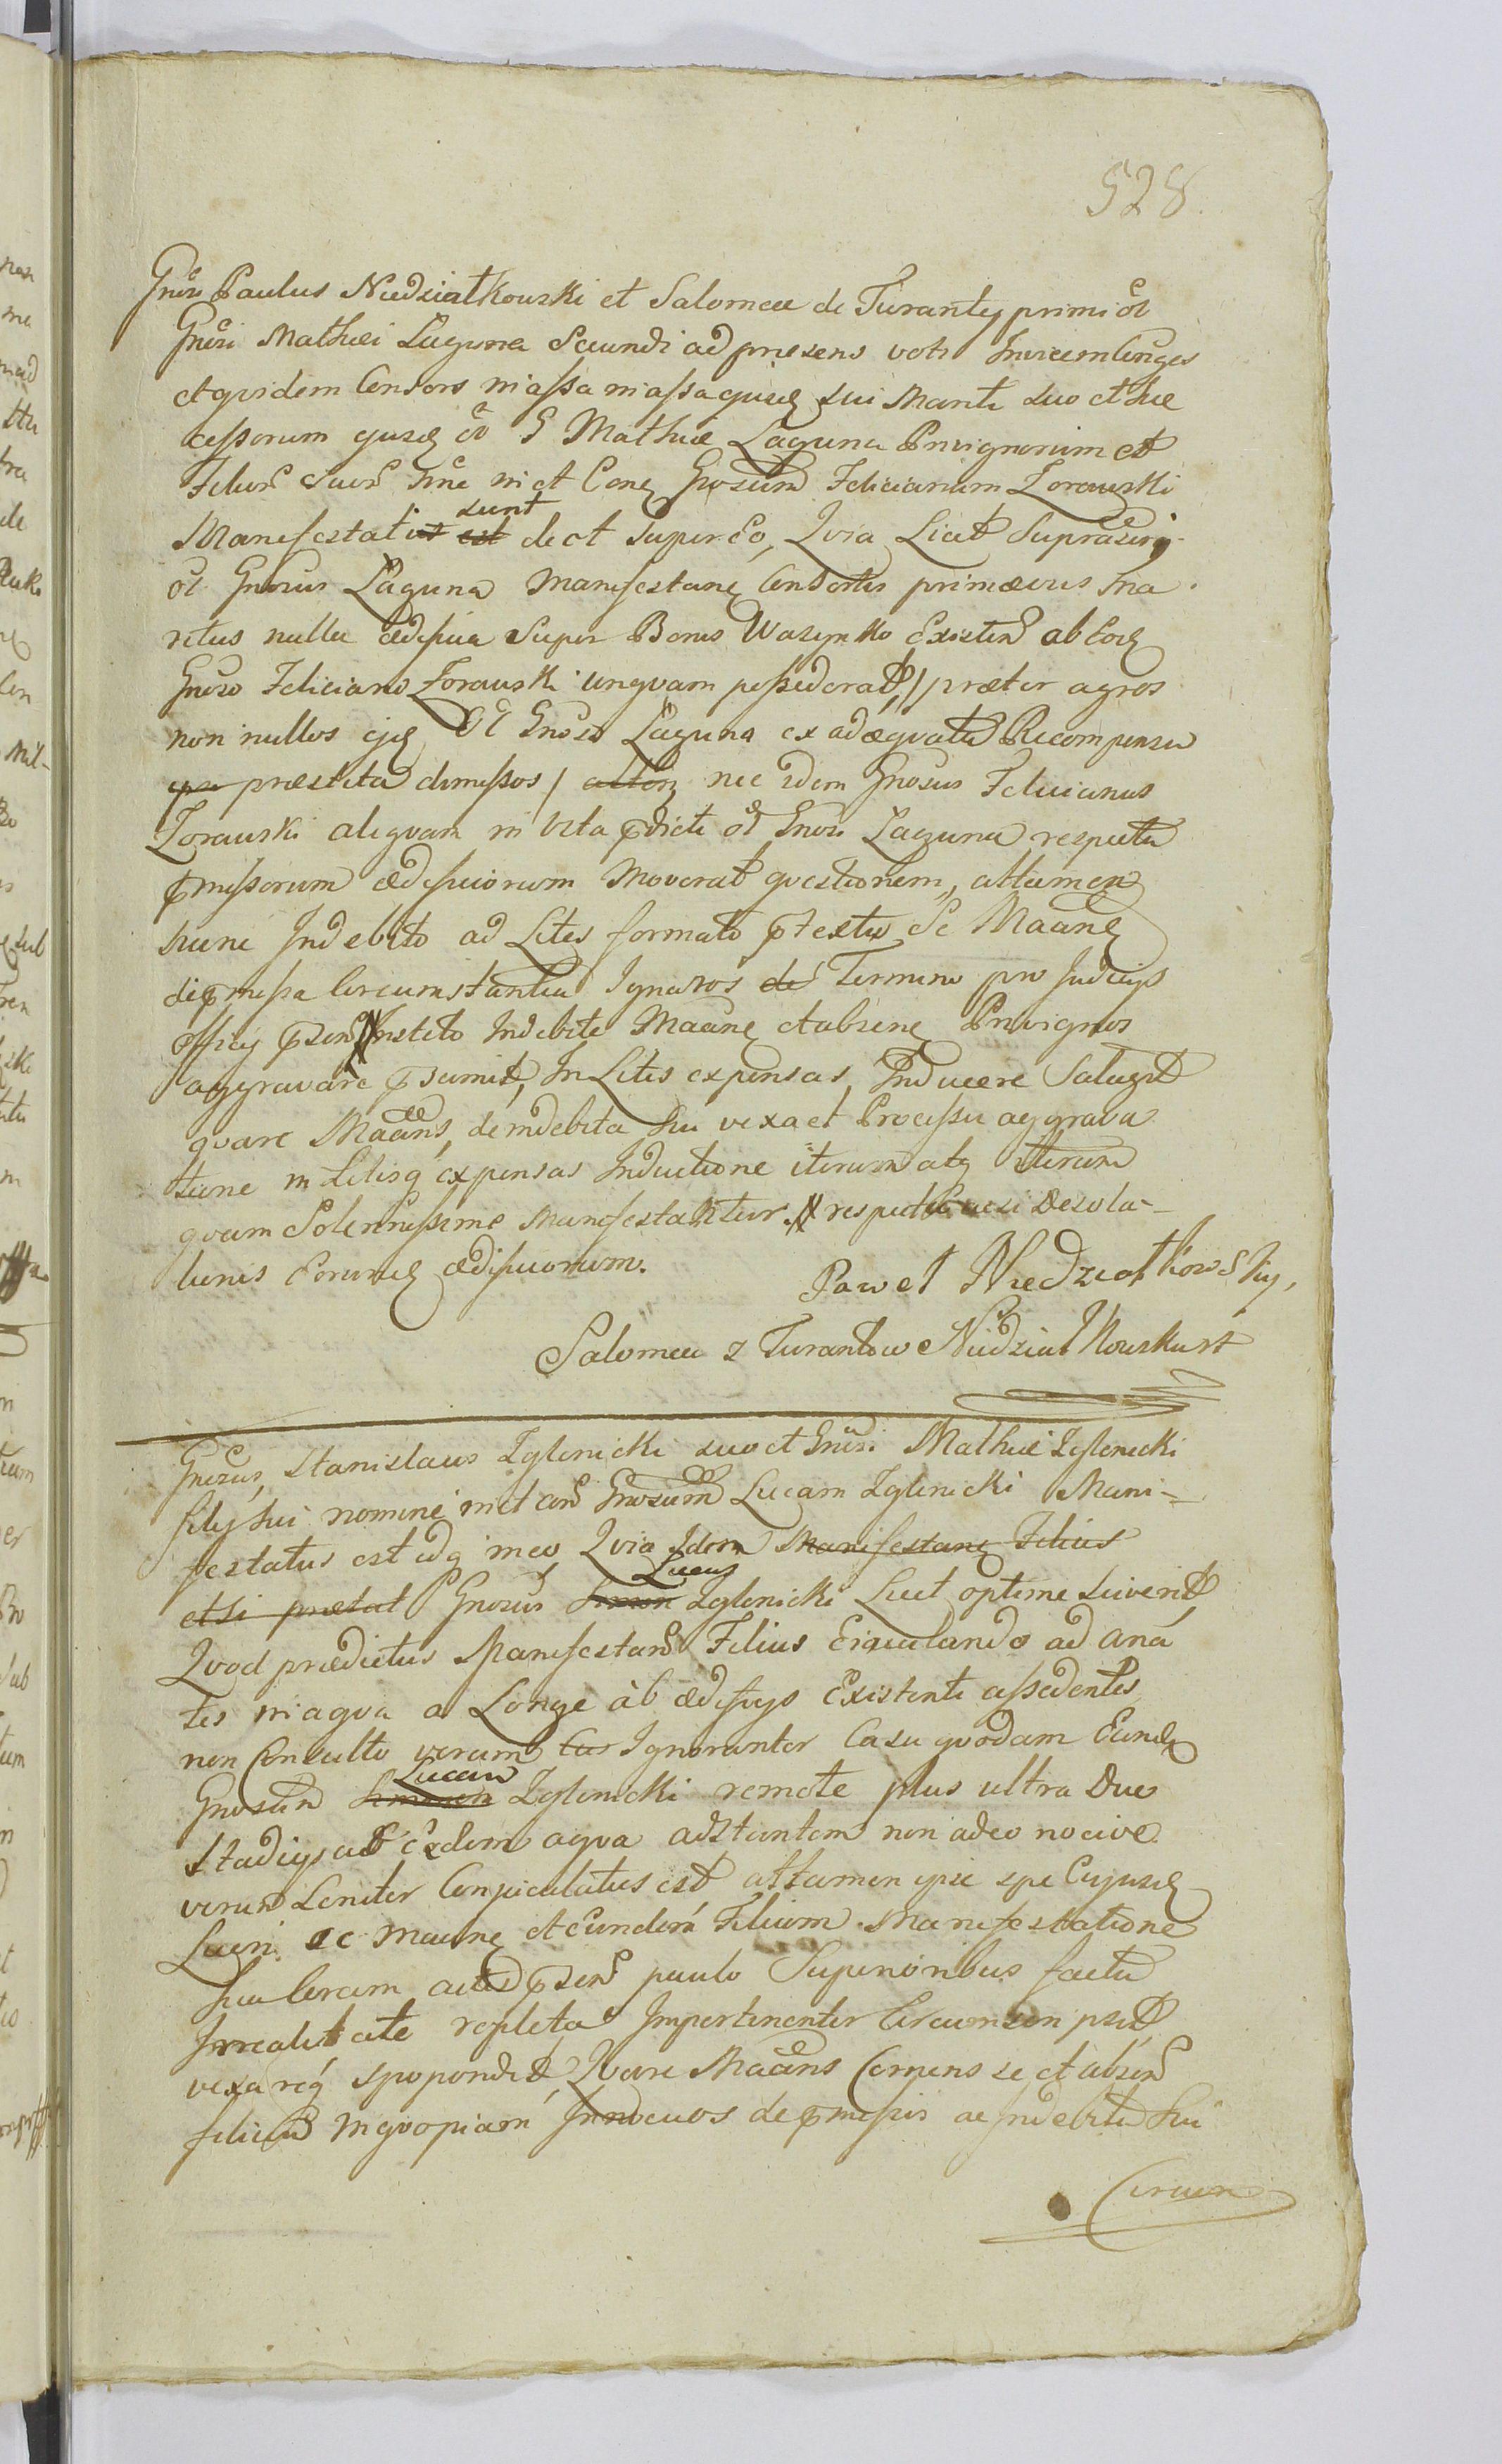 528.
Gnosi Paulus Niedziałkowski et Salomea de Turanty primi ol
Gnosi Mathei Laguna Secundi ad praesens voti Invicem Conges
et quidem Consors in assa sui Mariti suo et suc
cessorum ejusd ol G Mathiae Laguna Privignorum et
Filior Suor nne in et Con Gnosum Felicianum Zorawski
Manifestati sunt de et super Eo, Quia Licet Suprascrip
ol Gnosus Laguna Manifestan Consortis primaevus Ma
ritus nulla aedificia Super Bonis Wazynko Existen ab Eod
Gnoso Feliciano Zorawski unquam possederat, / praeter agros
non nullos ejd ol Gnoso Laguna ex adaequata Recompensa
praestita dimissos / nec idem Gnosus Felicianus
Zorawski aliquam in vita pdicti ol Gnosi Laguna respectu
pmissorum aedificiorum Moverat questionem, attamen
nunc Indebito ad Lites formato ptextu Se Maane
de pmissa Circumstantia Ignaros Termino pro Judicys
officy psen Instito Indebite Maane et absene Privignos
aggravare psumit, In Litis expensas Inducere Satagit
quare Maans, de indebita sui vexa et Processu aggrava
tione in Litisq expensas Inductione iterum atq iterum
quam Solennissime Manifestantur respectu Desola-
tionis Eorumd aedificiorum.
Paweł Niedziałkowsky,
Salomea z Turantow Niedziałkowska
Gnosus, Stanislaus Zglenicki suo et Gnosi Mathiae Zglenicki
fily sui nomine in et con Gnosum Lucam Zglenicki Mani-
festatus est idq ineo Quia Idem Manifestan Filius
etsi praetat Gnosus Lucas Zglenicki Licet optime sciverit,
Quod praedictus Manifestan Filius Ejaculando ad ana
tes in aqua a Longe ab aedificys Existenti assedentes
non Consulto verum Ignoranter Casu quodam Eund
Gnosum Lucam Zglenicki remote plus ultra Duo
stadiys ab eadem aqua adstantem non adeo nocive
verum Leniter Conjaculatus est attamen ipse spe Cujusd
Lucri se Maane et eundem Filium Manifestatione
sua Coram actis psen paulo Superioribus facta
Irrealitate repleta Impertinenter Circumscripsit
vexareq spopondit, Quare Maans Cernens se et absen
filium in quopiam Innocuos de pmissis ac Indebita sui
Circum